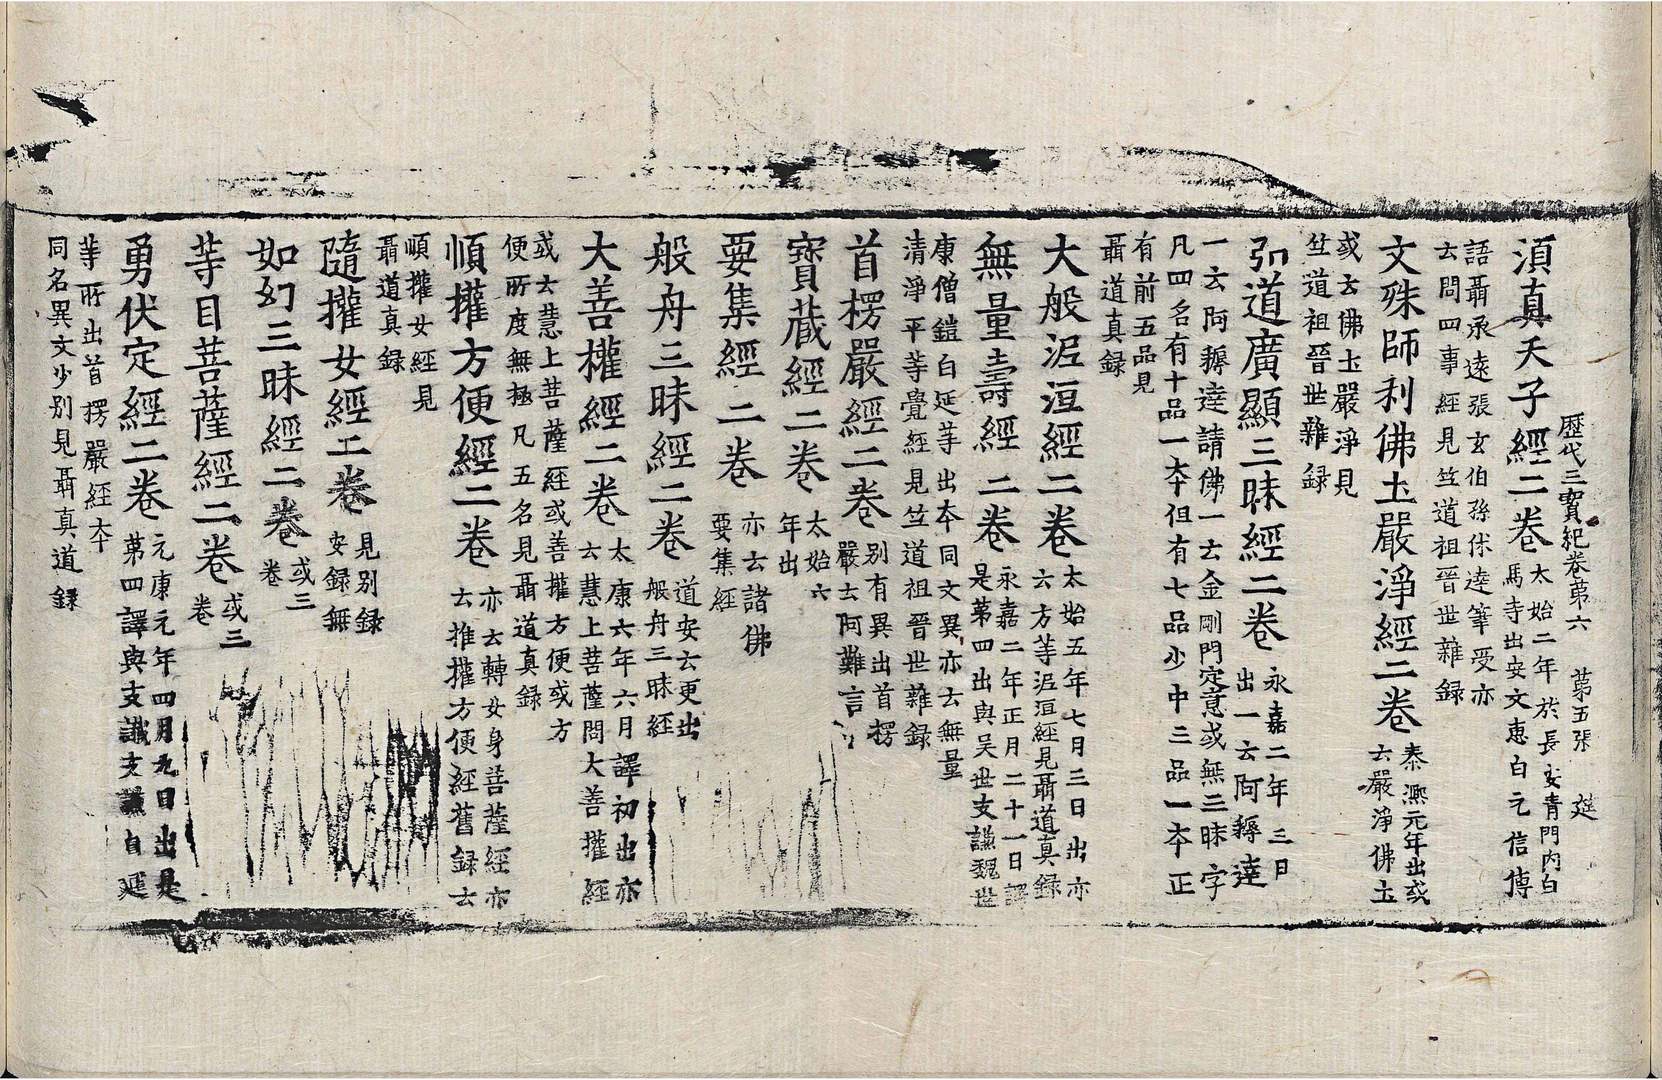 歷代三寶紀卷第六 第五張 㢟
湏真天子經二卷 太始二年於長安青門內白馬寺出安文惠白元信傳
語聶承遠張玄伯孫休逹筆受亦云問四事經見竺道祖晉世雜録
文殊師利佛土嚴淨經二卷 泰凞元年出或云嚴淨佛土
或云佛土嚴淨見竺道祖晉世雜録
弘道廣顯三昧經二卷 永嘉二年三日出一云阿耨逹
一云阿耨逹請佛一云金剛門定意或無三昧字
凡四名有十品一本但有七品少中三品一本正
有前五品見聶道真録
大般泥洹經二卷 太始五年七月三日出亦云方等泥洹經見聶道真録
無量壽經二卷 永嘉二年正月二十一日譯是第四出與吴世支謙魏世
康僧鎧白延等出本同文異亦云無量清淨平等覺經見竺道祖晉世雜録
首楞嚴經二卷 别有異出首楞嚴云阿難言
寶藏經二卷 太始六年出
要集經二卷 亦云諸佛要集經
般舟三昧經二卷 道安云更出般舟三昧經
大善權經二卷 太康六年六月譯初出亦云慧上菩薩問大善權經
或云慧上菩薩經或善權方便或方便所度無極凡五名見聶道真録
順權方便經二卷 亦云轉女身菩薩經亦云推權方便經舊録云
順權女經見聶道真録
隨權女經二卷 見别録安録無
如幻三昧經二卷 或三卷
等目菩薩經二卷 或三卷
勇伏定經二卷 元康元年四月九日出是第四譯與支讖支謙白延
等所出首楞嚴經本同名異文少别見聶真道録